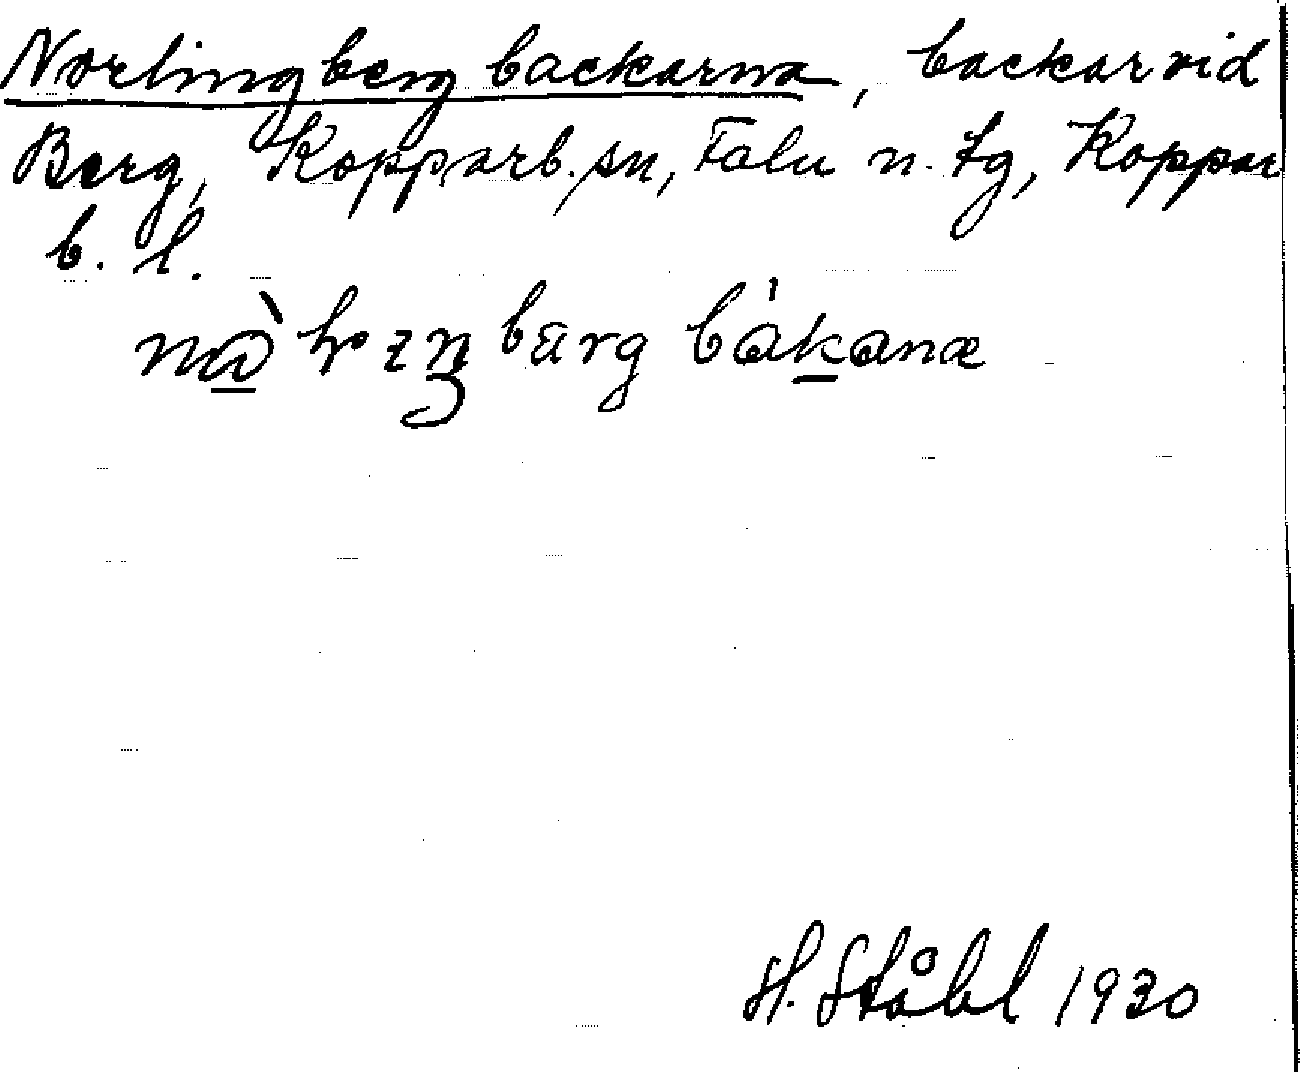 Norlingberg backarna, backar vid
Berg, Kopparb. sn, Falu n. tg, Koppar
b. l.
bärg bákanæ
H. Ståhl 1930